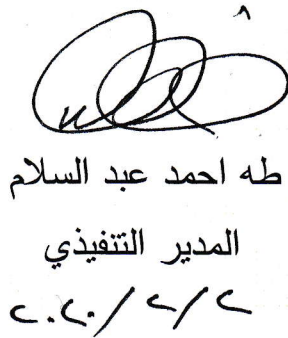 طه احمد عبد السلام
المدير التنفيذي
٢٠٢٠/٢/٢